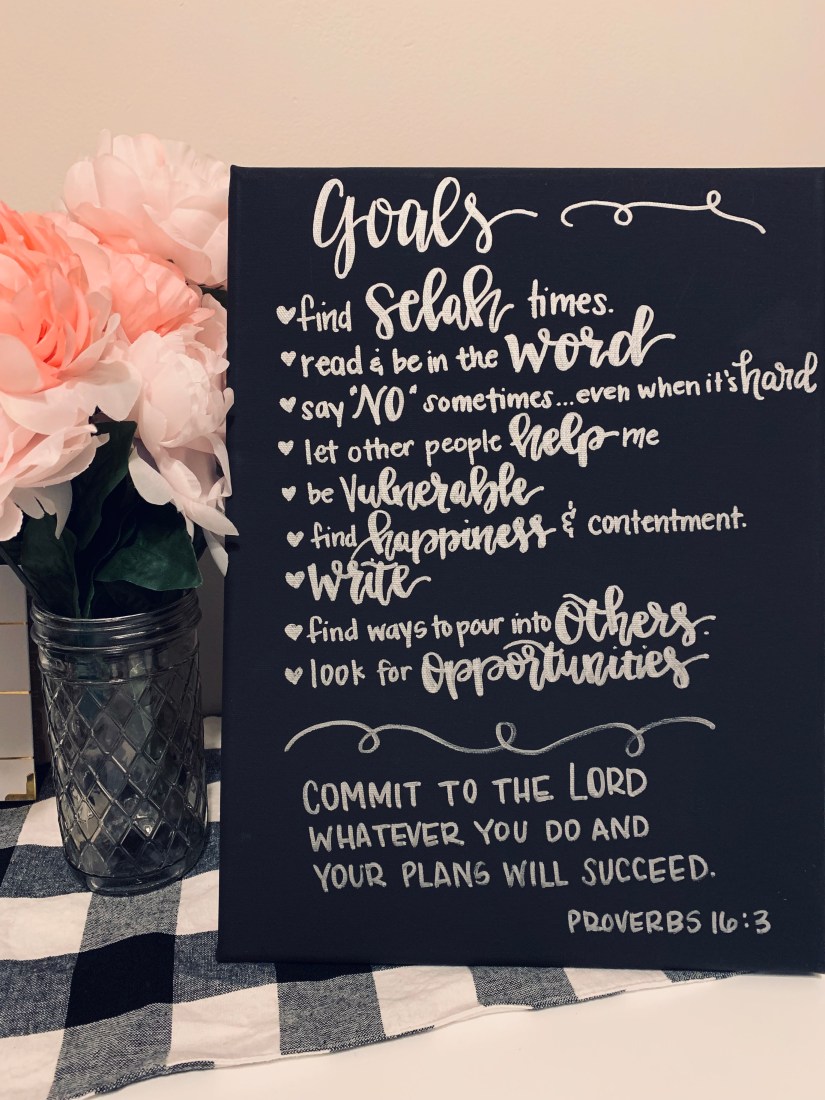 Goals
find Selah times.
read & be in the word
say "NO" sometimes...even when it's hard
let other people help me
be Vulnerable
find happiness & contentment.
Write
find ways to pour into Others.
look for Opportunities
COMMIT TO THE LORD
WHATEVER YOU DO AND
YOUR PLANS WILL SUCCEED.
PROVERBS 16:3